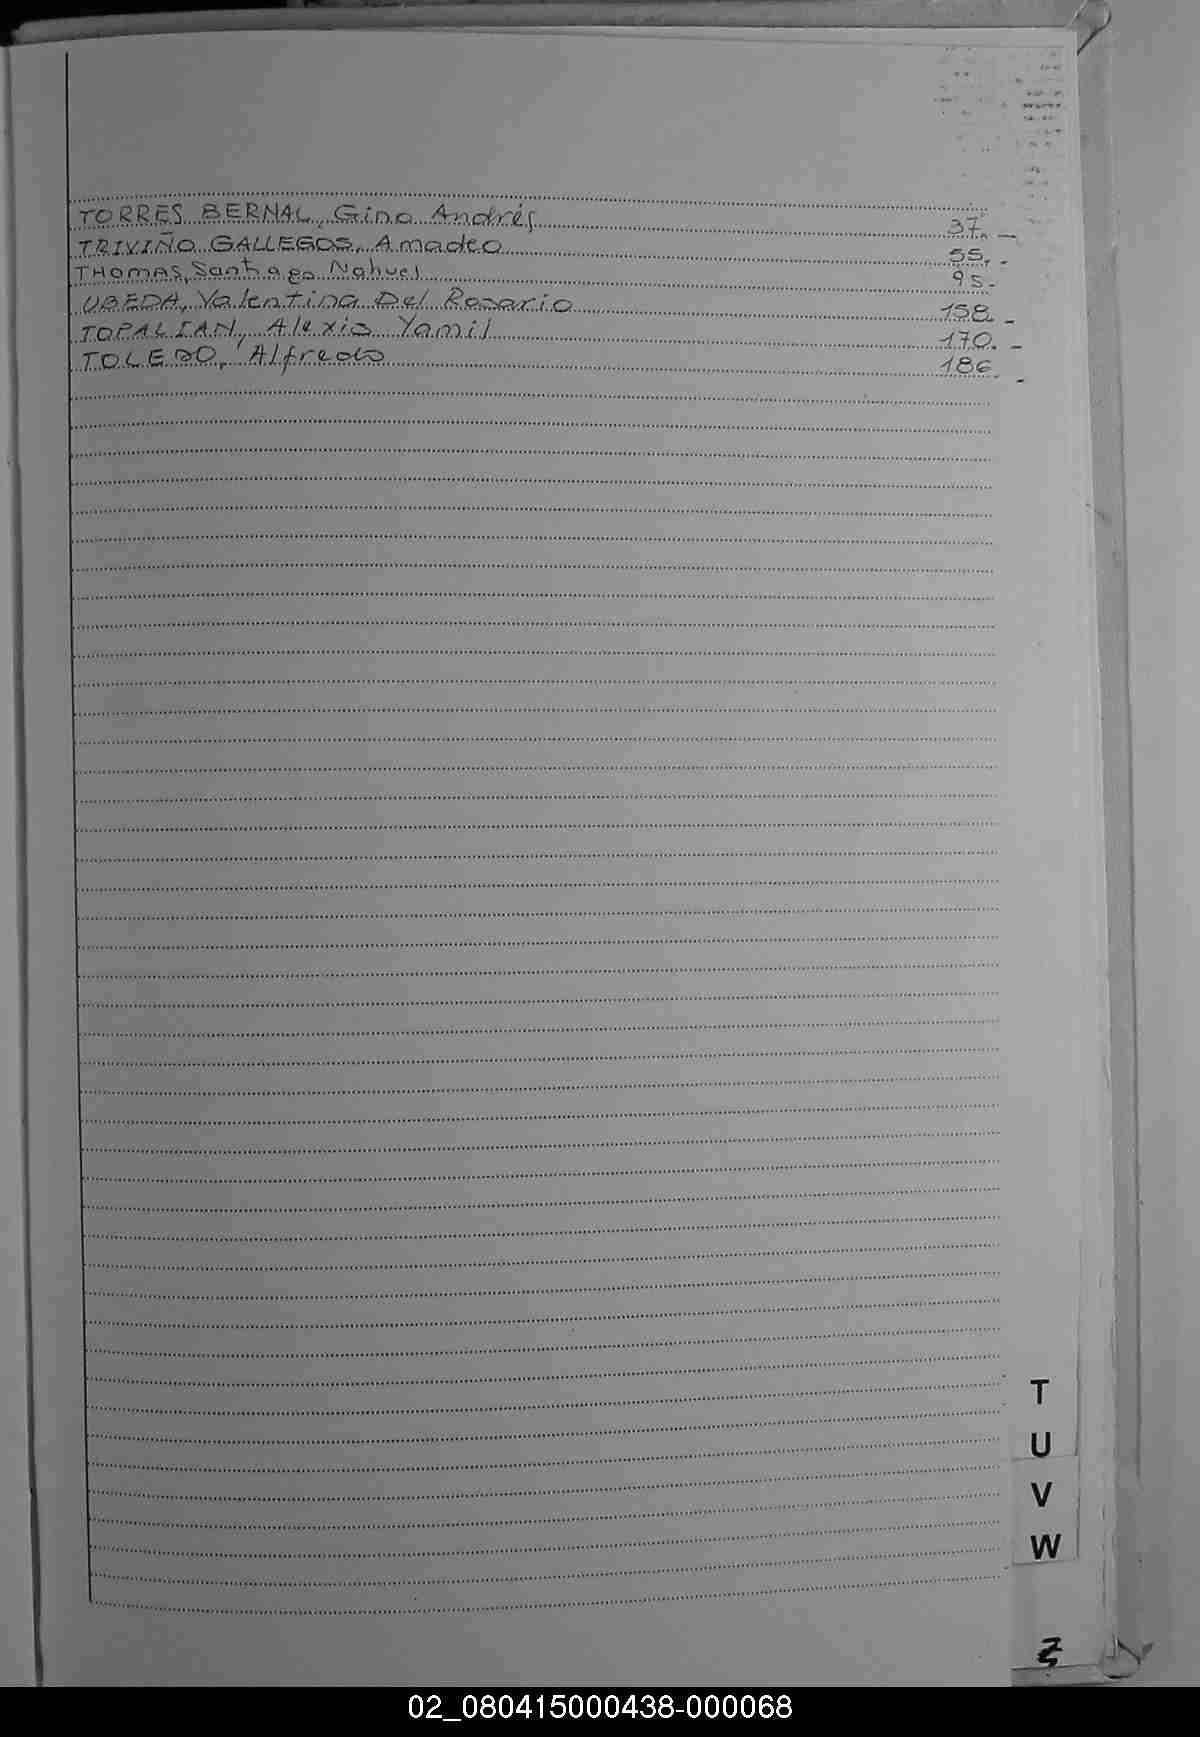 TORRES BERNAL, Gino Andrés 37. -
TRIVIÑO GALLEGOS, Amadeo 55. -
THOMAS, Santiago Nahuel 95. -
UBEDA, Valentina Del Rosario 158. -
TOPALIAN, Alexis Yamil 170. -
TOLEDO, Alfredo 186. -
T
U
V
W
Z
02_080415000438-000068